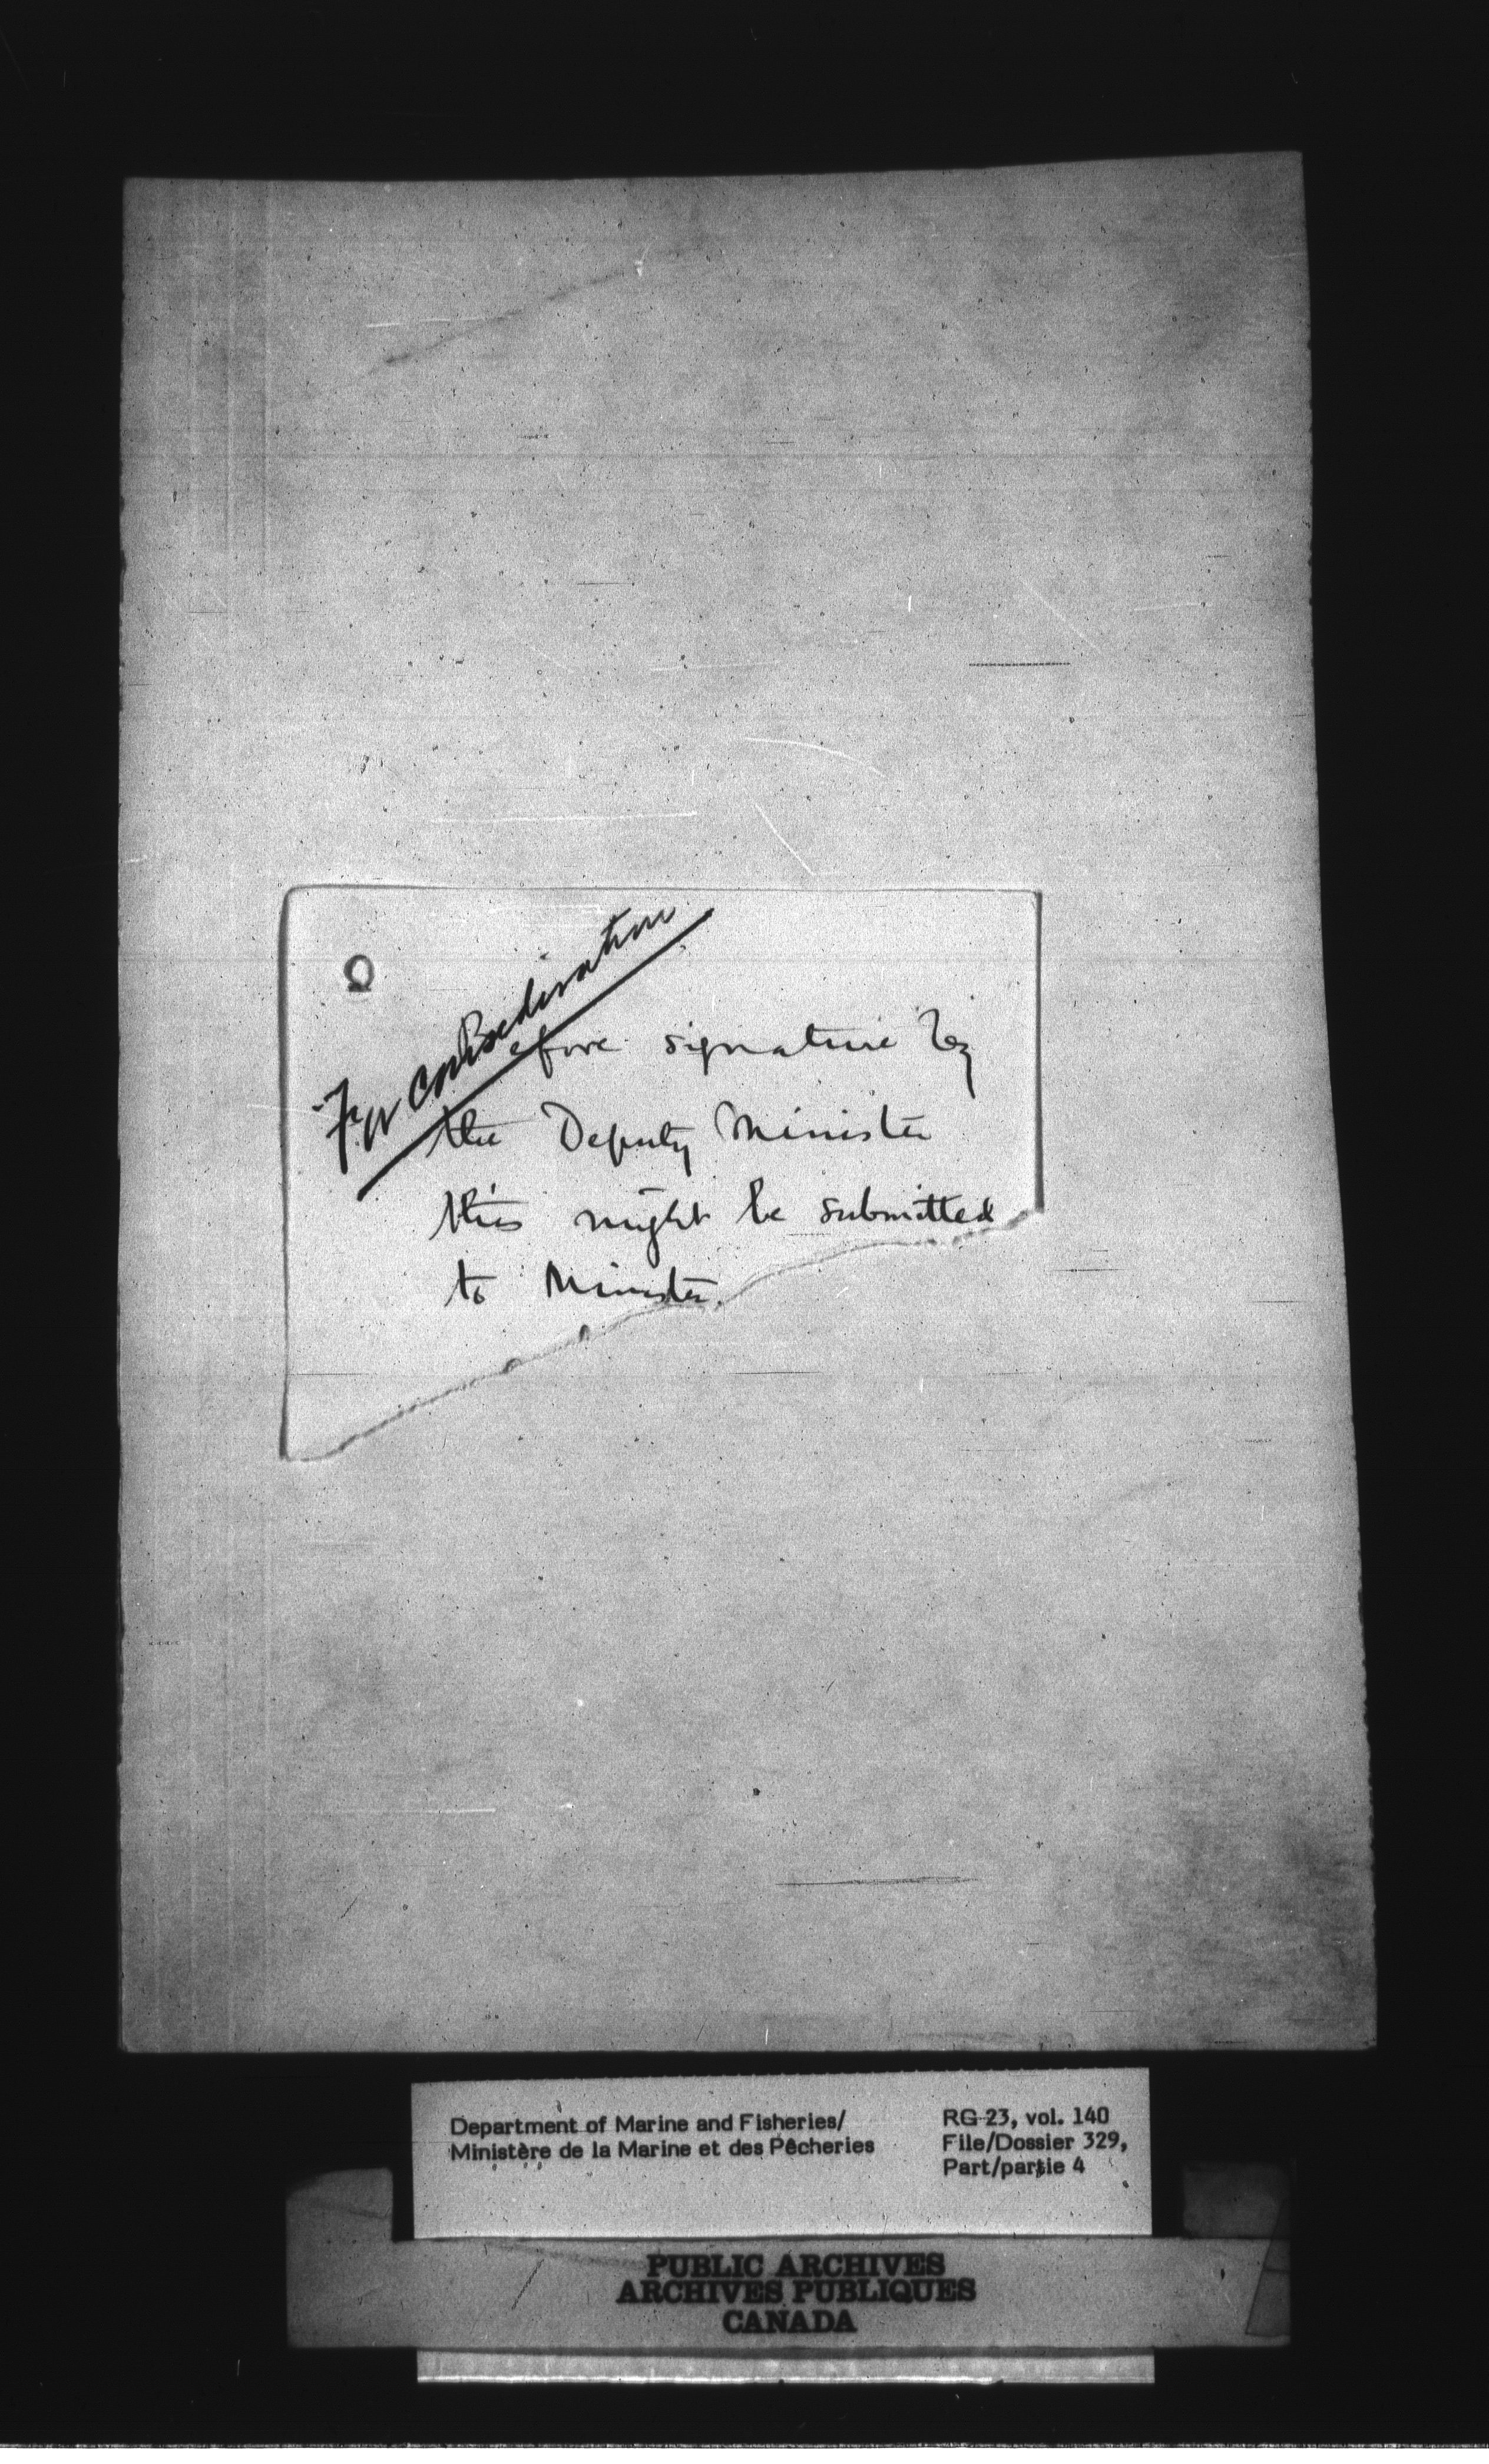 For consideration
Before signature by
the Deputy Minister
this might be submitted
to Minister.
Department of Marine and Fisheries/
Ministère de la Marine et des Pêcheries
RG 23, vol. 140
File/Dossier 329,
Part/partie 4
PUBLIC ARCHIVES
ARCHIVES PUBLIQUES
CANADA